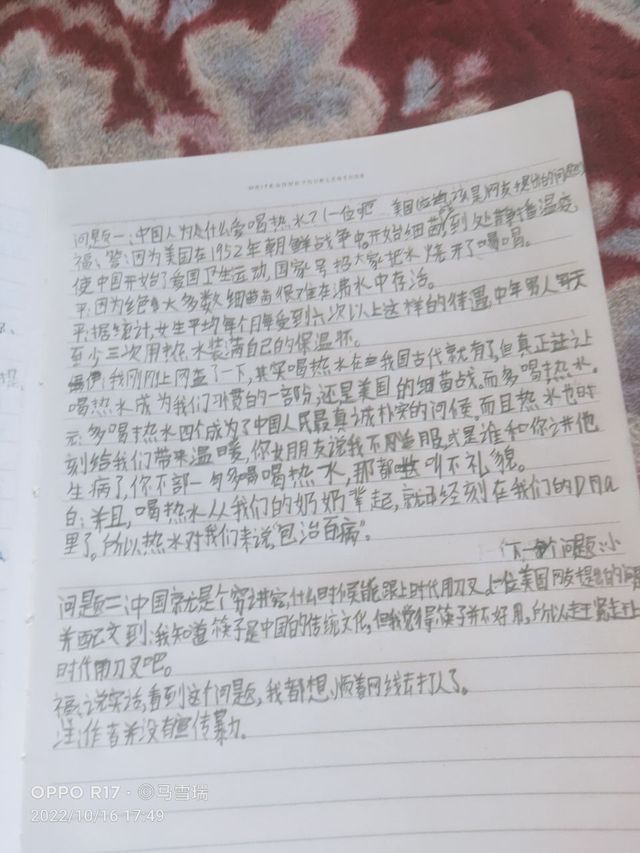 WRITE DOWN YOUR LEKTURE
问题一:中国人为什么爱喝热水?(一位吧 美国 是网友提出的问题)
福:答:因为美国在1952年朝鲜战争中,开始细菌 到处静造温疫
使中国开始了爱国卫生运动,国家号招大家把水烧开了喝喝。
平:因为绝大多数细菌很难在沸水中存活。
平:据统计,女生平均每个月每受到六次以上这样的待遇,中年男人每天
至少三次用热水装满自己的保温杯。
我刚刚上网查了一下,其实喝热水在我国古代就有了,但真正让
喝热水成为我们习惯的一部份,还是美国的细菌战。而多喝热水。
元:多喝热水四个成为了中国人民最真诚朴实的问候。而且热水也时
刻给我们带来温暖,你女朋友说我不舒服,或是谁和你讲他
生病了,你不部一句多喝喝热水,那都叫不礼貌。
白:并且,喝热水从我们的奶奶辈起,就已经刻在我们的DNA
里了。所以热水对我们来说"包治百病"。
(下一个问题:)
问题二:中国就是个穷讲究,什么时候能跟上时代用刀叉 一位美国网友提出的问题
并配文到:我知道筷子是中国的传统文化,但我觉得筷子并不好用,所以赶紧赶上
时代用刀叉吧。
福:说实话,看到这个问题,我都想顺着网线去打人了。
注:作者并没有宣传暴力。
OPPO R17 · ©马雪瑞
2022/10/16 17:49